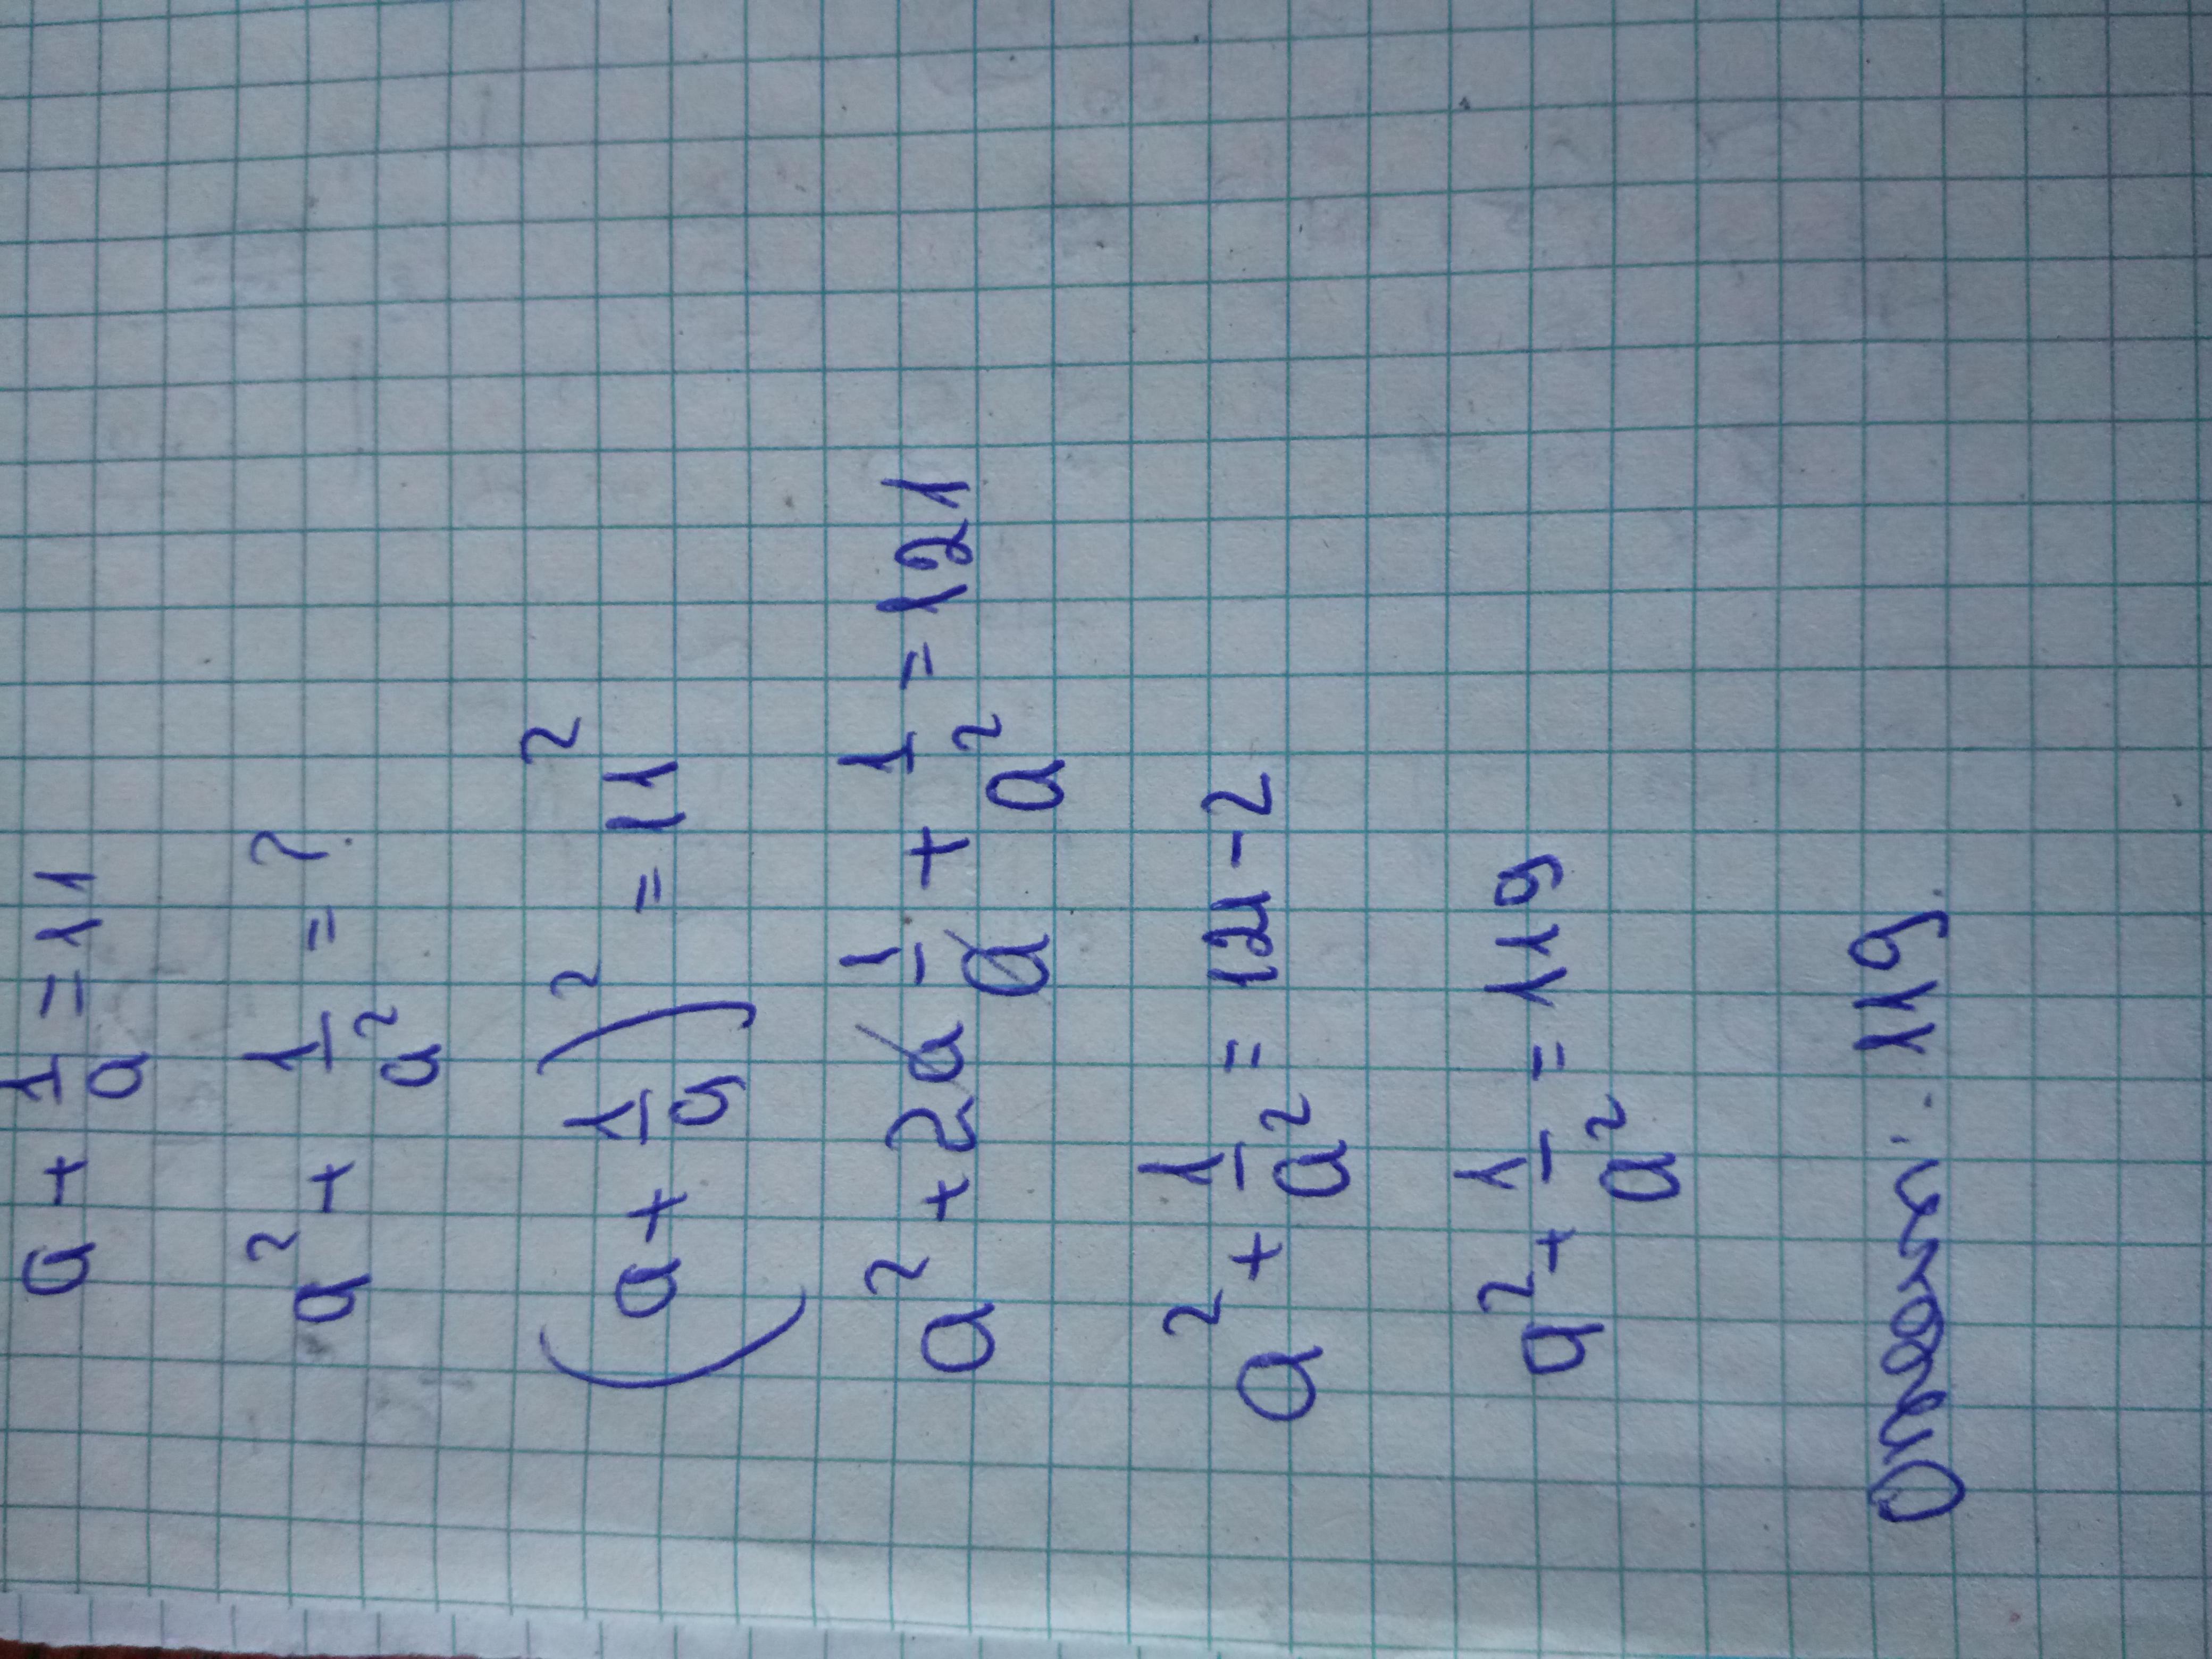 a + 1/a = 11
a² + 1/a² = ?
(a + 1/a)² = 11²
a² + 2a 1/a + 1/a² = 121
a² + 1/a² = 121 - 2
a² + 1/a² = 119
Ответ: 119.